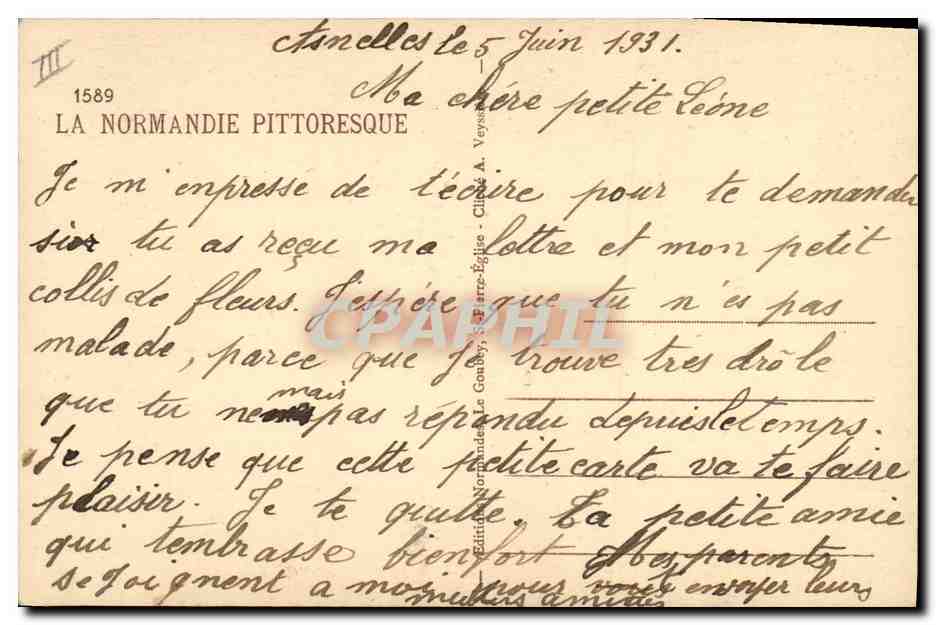 III
Asnelles le 5 Juin 1931.
1589
Ma chére petite Léone
LA NORMANDIE PITTORESQUE
Je m'enpresse de t'écrire pour te demander
si tu as reçu ma lettre et mon petit
collis de fleurs. J'espére que tu n'es pas
malade, parce que Je trouve tres drôle
mais
que tu ne pas répondu depuis le temps.
Je pense que cette petite carte va te faire
plaisir. Je te quitte. Ta petite amie
qui tembrasse bien fort Mes parents
se Joignent a moi pour vous envoyer leurs
meillers amities
Editions Normandes, Le Goubey, St-Pierre-Église - Cliché A. Veysset
CPAPHIL